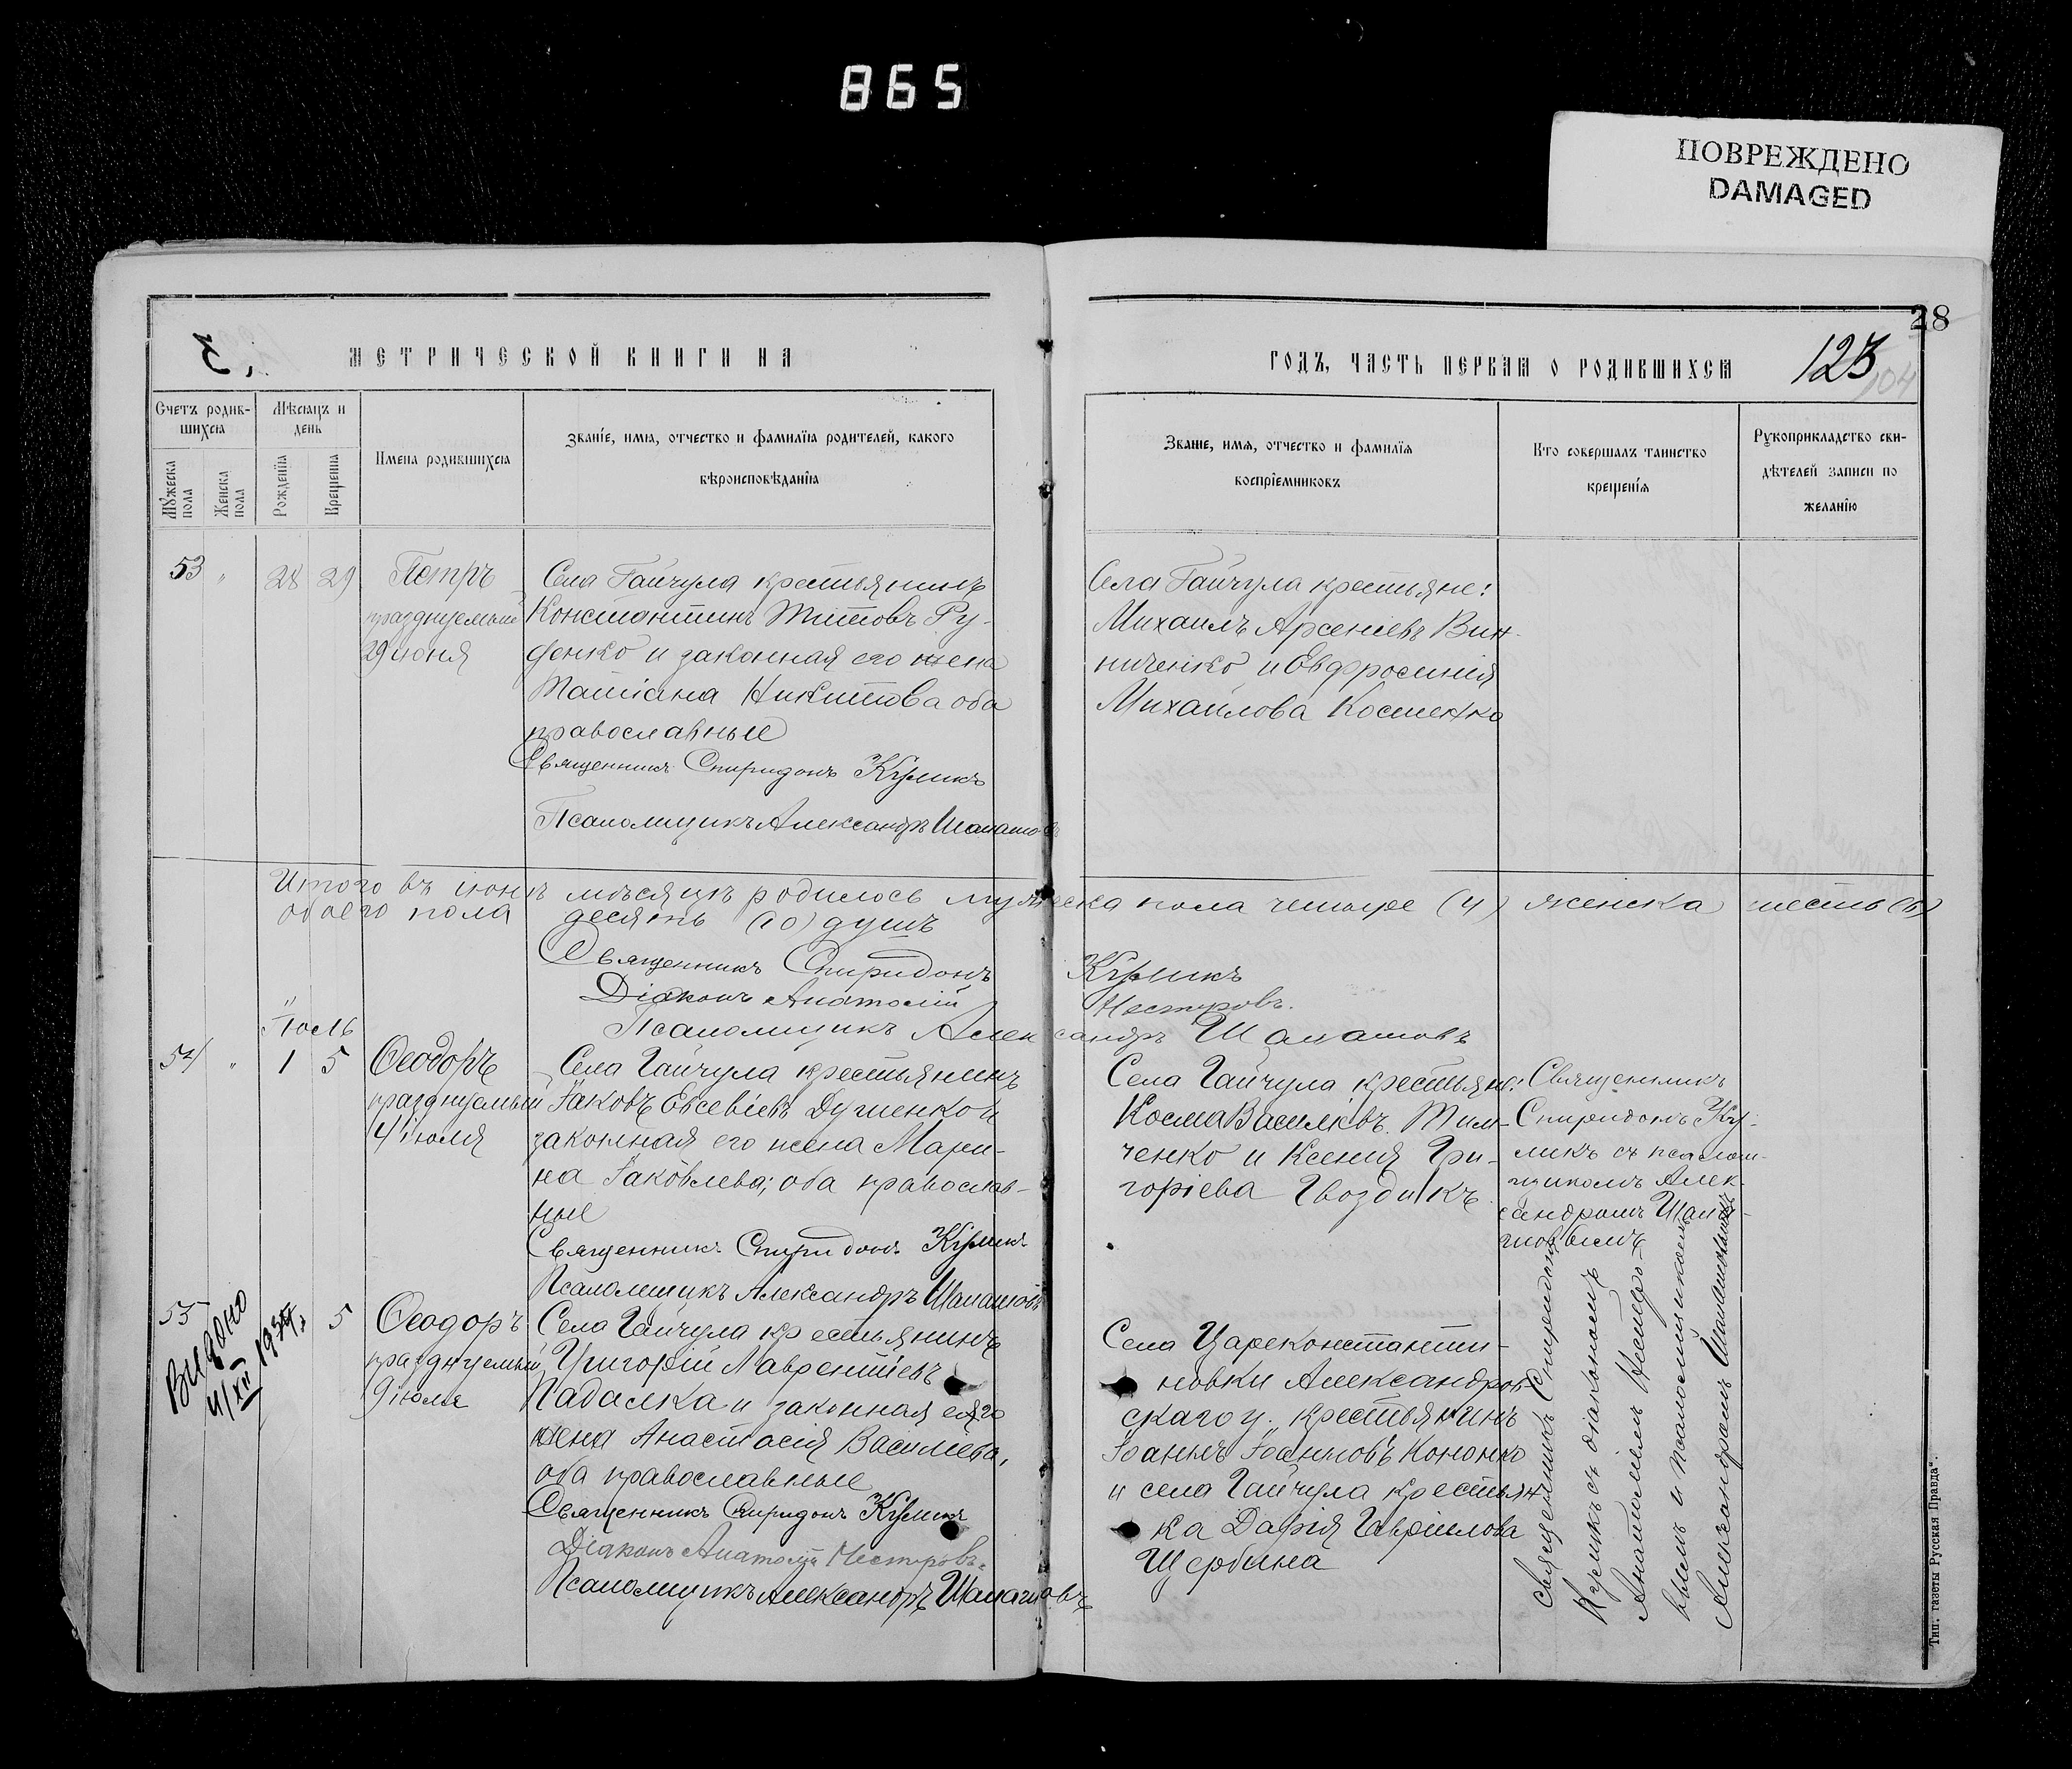 865
ПОВРЕЖДЕНО
DAMAGED
28
МЕТРИЧЕСКОЙ КНИГИ НА
ГОДЪ, ЧАСТЬ ПЕРВАЯ О РОДИВШИХСЯ
123
104
Счетъ родив-
шихся
Мѣсяцъ и
день
Имена родившихся
Званіе, имя, отчество и фамилія родителей, какого
вѣроисповѣданія
Мужеска
пола
Женска
пола
Рожденія
Крещенія
Званіе, имя, отчество и фамилія
воспріемниковъ
Кто совершалъ таинство
крещенія
Рукоприкладство сви-
дѣтелей записи по
желанію
53 " 28 29 Петръ
празднуемый
29 июня
Села Гайчула крестьянинъ
Константинъ Титовъ Ру-
денко и законная его жена
Татіана Никитова оба
православные
Священникъ Спиридонъ Куликъ
Псаломщикъ Александръ Шаматовъ
Села Гайчула крестьяне:
Михаилъ Арсеніевъ Вин-
ниченко и Евфросинія
Михайлова Костенко
Итого въ іюнѣ мѣсяцѣ родилось мужеска пола четыре (4) женска шесть (6)
обоего пола десять (10) душъ
Священникъ Спиридонъ Куликъ
Діаконъ Анатолій Нестеровъ.
Псаломщикъ Александръ Шаматовъ
Іюль
54 " 1 5 Ѳеодоръ
празднуемый
4 іюля
Села Гайчула крестьянинъ
Іаковъ Евсевіевъ Душенко и
законная его жена Мари-
на Іаковлева; оба православ-
ные
Священникъ Спиридонъ Куликъ
Псаломщикъ Александръ Шаматовъ
Села Гайчула крестьяне:
Косма Василіевъ Тим-
ченко и Ксенія Гри-
горіева Гвоздикъ
Священникъ
Спиридонъ Ку-
ликъ съ псалом-
щикомъ Алек-
сандромъ Шама-
товымъ
55 5 Ѳеодоръ
празднуемый
9 іюля
Видано
11/XII
Села Гайчула крестьянинъ
Григорій Лаврентіевъ
Падалка и законная его
жена Анастасія Василіева,
оба православные
Священникъ Спиридонъ Куликъ
Діаконъ Анатолій Нестеровъ
Псаломщикъ Александръ Шаматовъ
Села Цареконстанти-
новки Александров-
скаго у. крестьянинъ
Іоаннъ Іоанновъ Кононко
и села Гайчула крестьян-
ка Дарія Гавріилова
Щербина
Священникъ Спиридонъ
Куликъ съ діакономъ
Анатоліемъ Нестеро-
вымъ и псаломщикомъ
Александромъ Шаматовымъ
Тип. газеты Русская Правда".